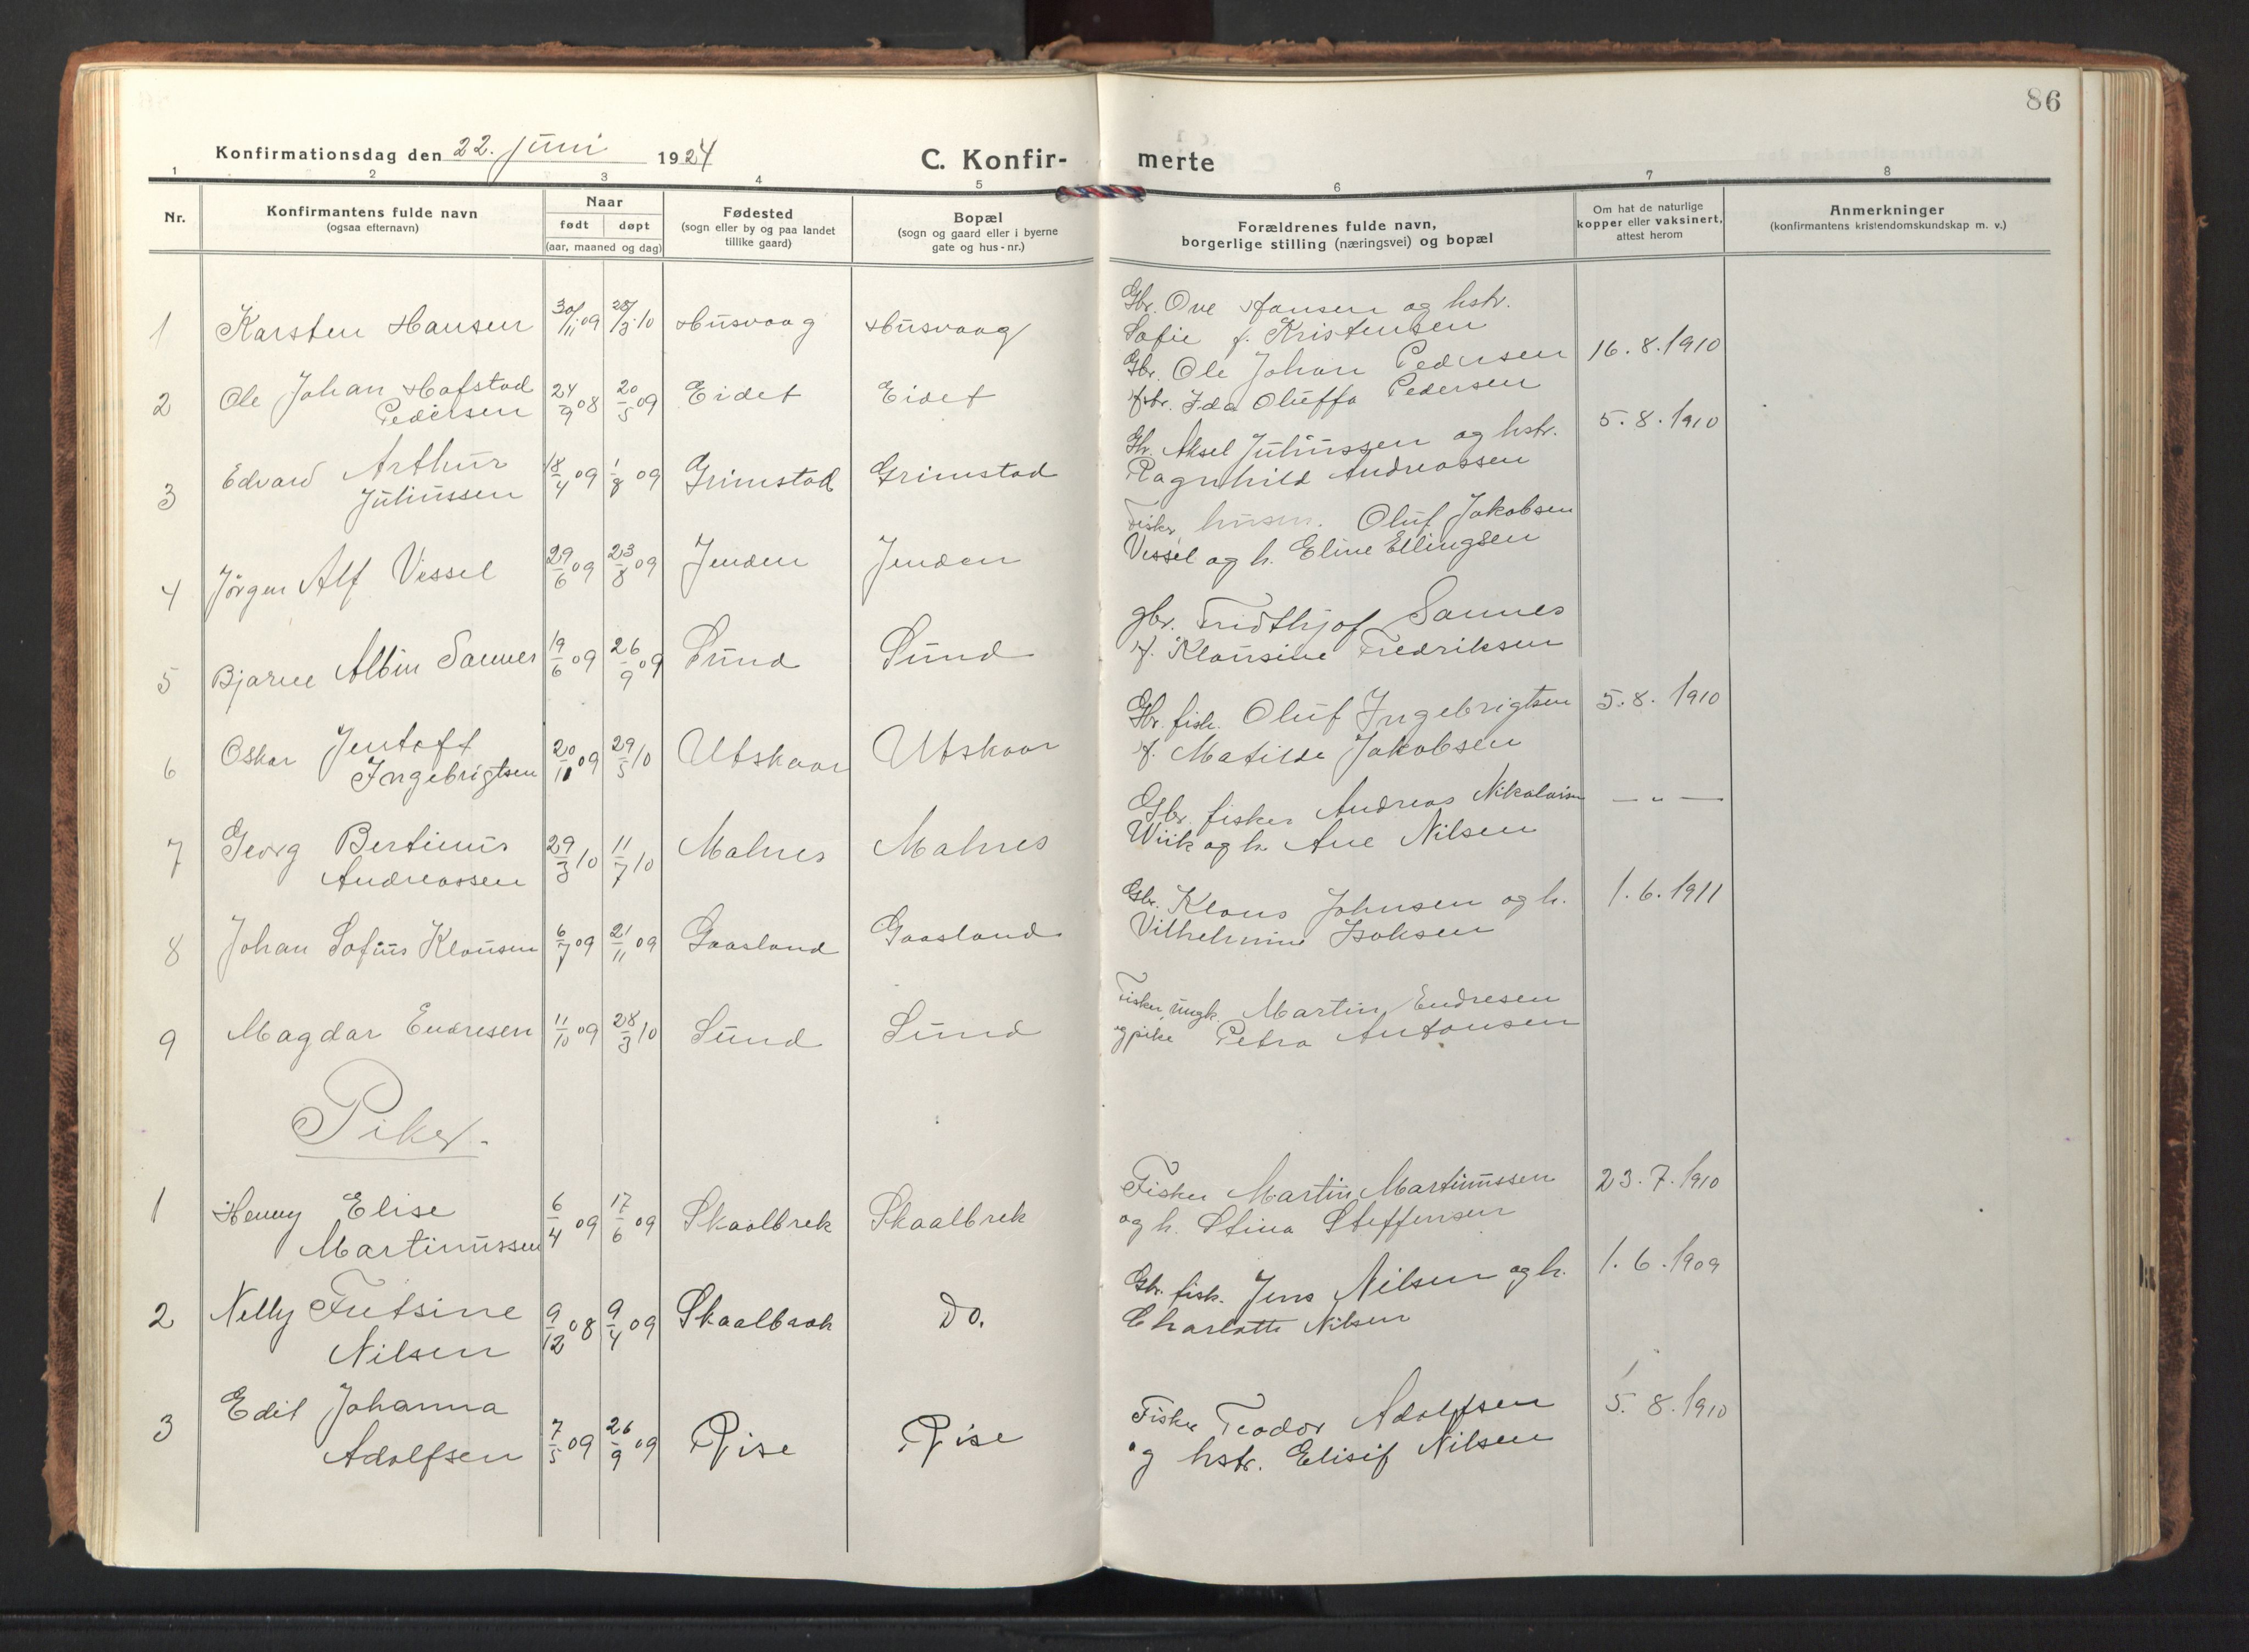 86
Konfirmationsdag den 22. juni 1924
C. Konfir-
merte
1 2 3 4 5 6 7 8
Nr.
Konfirmantens fulde navn
(ogsaa efternavn)
Naar
født døpt
(aar, maaned og dag)
Fødested
(sogn eller by og paa landet
tillike gaard)
Bopæl
(sogn og gaard eller i byerne
gate og hus-nr.)
Forældrenes fulde navn,
borgerlige stilling (næringsvei) og bopæl
Om hat de naturlige
kopper eller vaksinert,
attest herom
Anmerkninger
(konfirmantens kristendomskundskap m. v.)
1 Karsten Hansen 30/11 09 28/3 10 Husvaag Husvaag
Gbr. Ove Hansen og hstr.
Sofie f. Kristensen
16.8.1910
2 Ole Johan Hofstad
Pedersen 24/9 08 20/5 09 Eidet Eidet
Gbr. Ole Johan Pedersen
Ida Oluffa Pedersen
5.8.1910
3 Edvard Arthur
Juliussen 18/4 09 1/8 09 Grimstad Grimstad
Gbr. Aksel Juliussen og hstr.
Ragnhild Andreassen
4 Jørgen Alf Vessel 29/6 09 23/8 09 Jenden Jenden
Fisker, husm. Oluf Jakobsen
Vessel og h. Eline Ellingsen
5 Bjarne Albin Sannes 19/6 09 26/9 09 Sund Sund
gbr. Fridthjof Sannes
f. Klausine Fredriksen
6 Oskar Jentoft
Ingebrigtsen 20/11 09 29/5 10 Utskaar Utskaar
Gbr. fisk. Oluf Ingebrigtsen
f. Matilde Jakobsen
5.8.1910
7 Georg Bertinus
Andreassen 29/3 10 11/7 10 Malnes Malnes
Gbr. fisker Andreas Nikolaisen
Wiik og h. Ane Nilsen
— " —
8 Johan Sofus Klausen 6/7 09 21/11 09 Gaasland Gaasland
Gbr. Klaus Johnsen og h.
Vilhelmine Isaksen
1.6.1911
9 Magdar Endresen 11/10 09 28/3 10 Sund Sund
Fisker, ungk. Martin Endresen
og pike Petra Antonsen
Piker.
1 Henny Elise
Martinussen 6/4 09 17/6 09 Skaalbrek Skaalbrek
Fisker Martin Martinussen
og h. Stina Steffensen
23.7.1910
2 Nelly Fritsine
Nilsen 9/12 08 9/4 09 Skaalbrek Do.
Gbr. fisk. Jens Nilsen og h.
Charlotte Nilsen
1.6.1909
3 Edit Johanna
Adolfsen 7/5 09 26/9 09 Rise Rise
Fisker Teodor Adolfsen
og hstr. Elisif Nilsen
5.8.1910